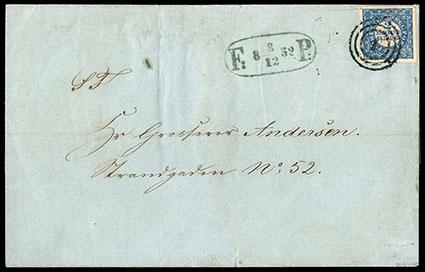 F. 8 8/12 52 P.
S.T.
Hr Grosserer Andersen.
Strandgaden No 52.